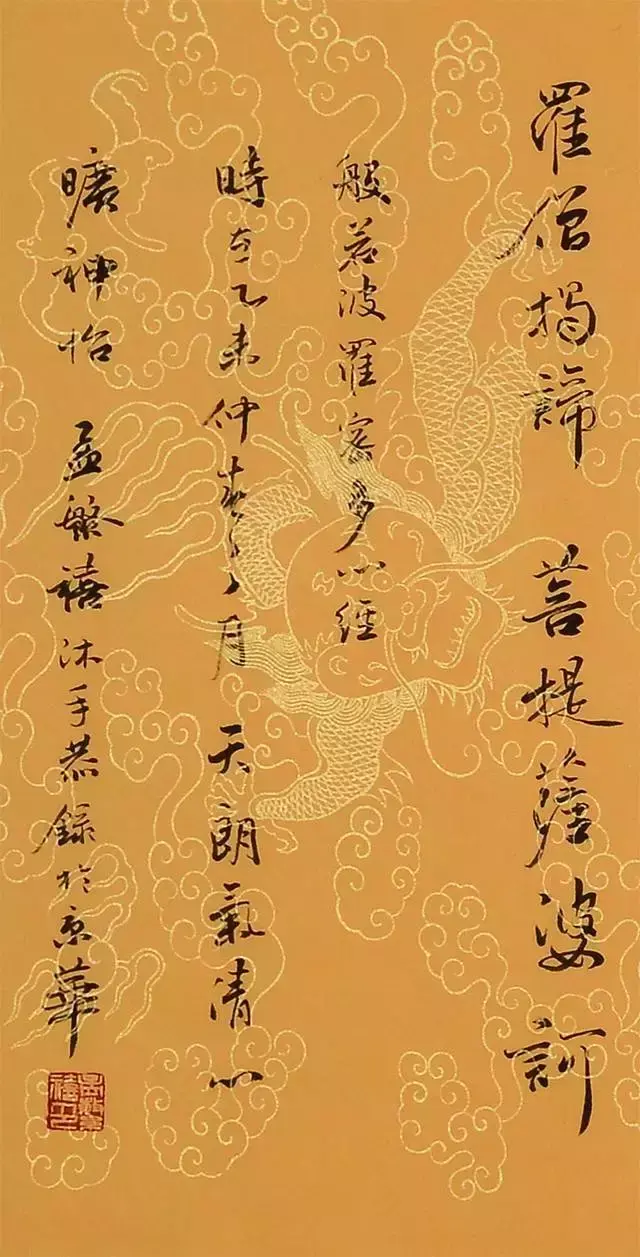 羅僧揭諦 菩提薩婆訶
般若波羅密多心經
時在乙未仲春之月 天朗氣清心
曠神怡 孟繁禧沐手恭錄於京華